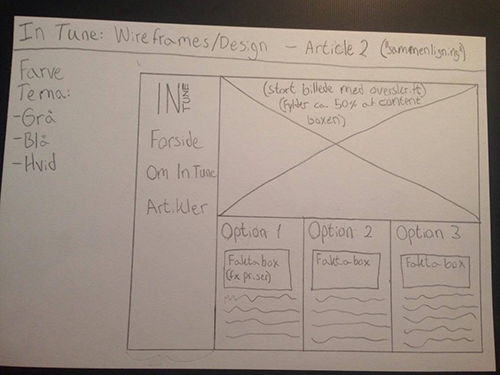 In Tune: Wireframes/Design - Article 2 ("Sammenligning")
Farve
Tema:
-Grå
-Blå
-Hvid
IN TUNE
Forside
Om InTune
Artikler
(stort billede med overskrift)
(Fylder ca. 50% af content
boxen)
Option 1
Faktabox
(fx priser)
Option 2
Faktabox
Option 3
Faktabox